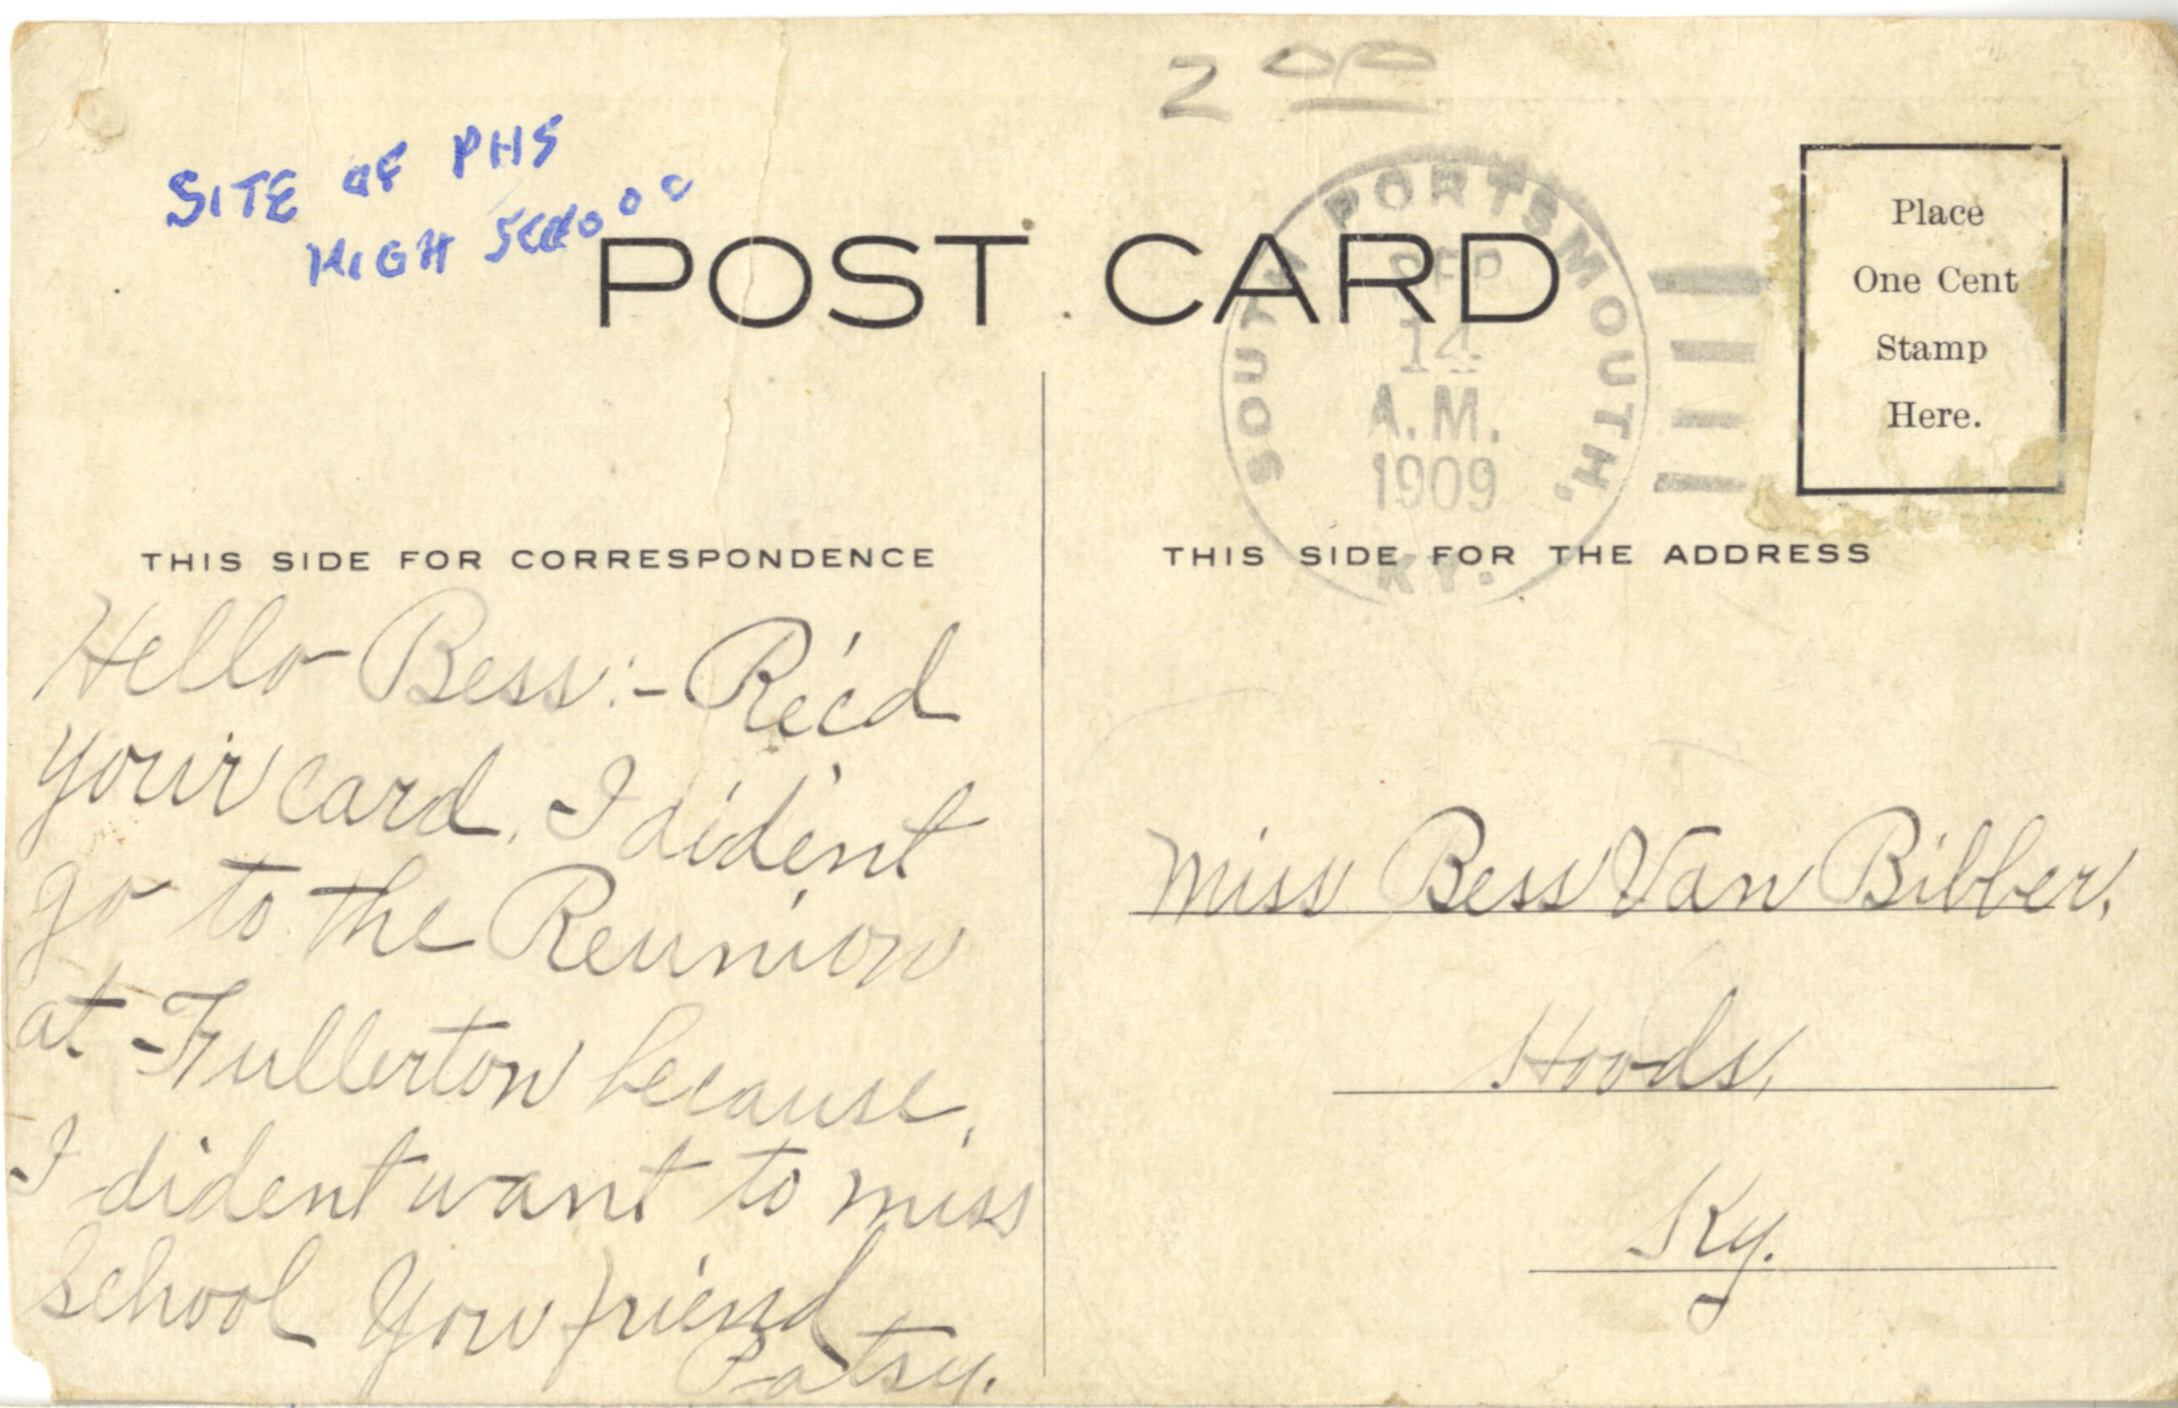 2 00
SITE OF PHS
HIGH SCHOOL
POST CARD
SOUTH PORTSMOUTH,
SEP
14
A.M.
1909
KY.
Place
One Cent
Stamp
Here.
THIS SIDE FOR CORRESPONDENCE
THIS SIDE FOR THE ADDRESS
Hello Bess:- Rec'd
your card. I dident
go to the Reunion
at Fullerton because,
I dident want to miss
school You friend
Patsy.
Miss Bess Van Bibber,
Hoods,
Ky.